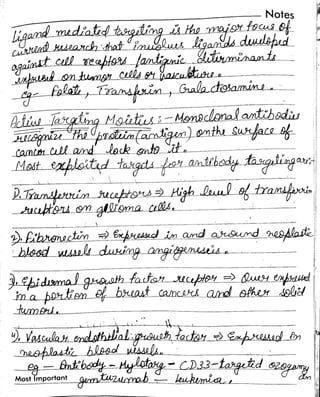 Notes
Ligand mediated targeting is the major focus of
current research that involves ligands developed
against cell receptors /antigenic determinants
expressed on tumor cells or vasculature.
eg- Folate, Transferrin, Galactosamine.
Active Targeting Moieties :- Monoclonal antibodies
recognize the protein (antigen) on the surface of
cancer cell and lock onto it.
Most exploited targets for antibody targeting are:-
1). Transferrin receptors ⇒ High level of transferrin
receptors on glioma cells.
2). Fibronectin ⇒ Expressed in and around neoplastic
blood vessels during angiogenesis.
3). Epidermal growth factor receptor ⇒ Over expressed
in a portion of breast cancers and other solid
tumors.
4). Vascular endothelial growth factor ⇒ Expressed in
neoplastic blood vessels.
eg - Antibody - Mylotarg - CD33-targeted ozogamy
Most Important gemtuzumab - leukemia,